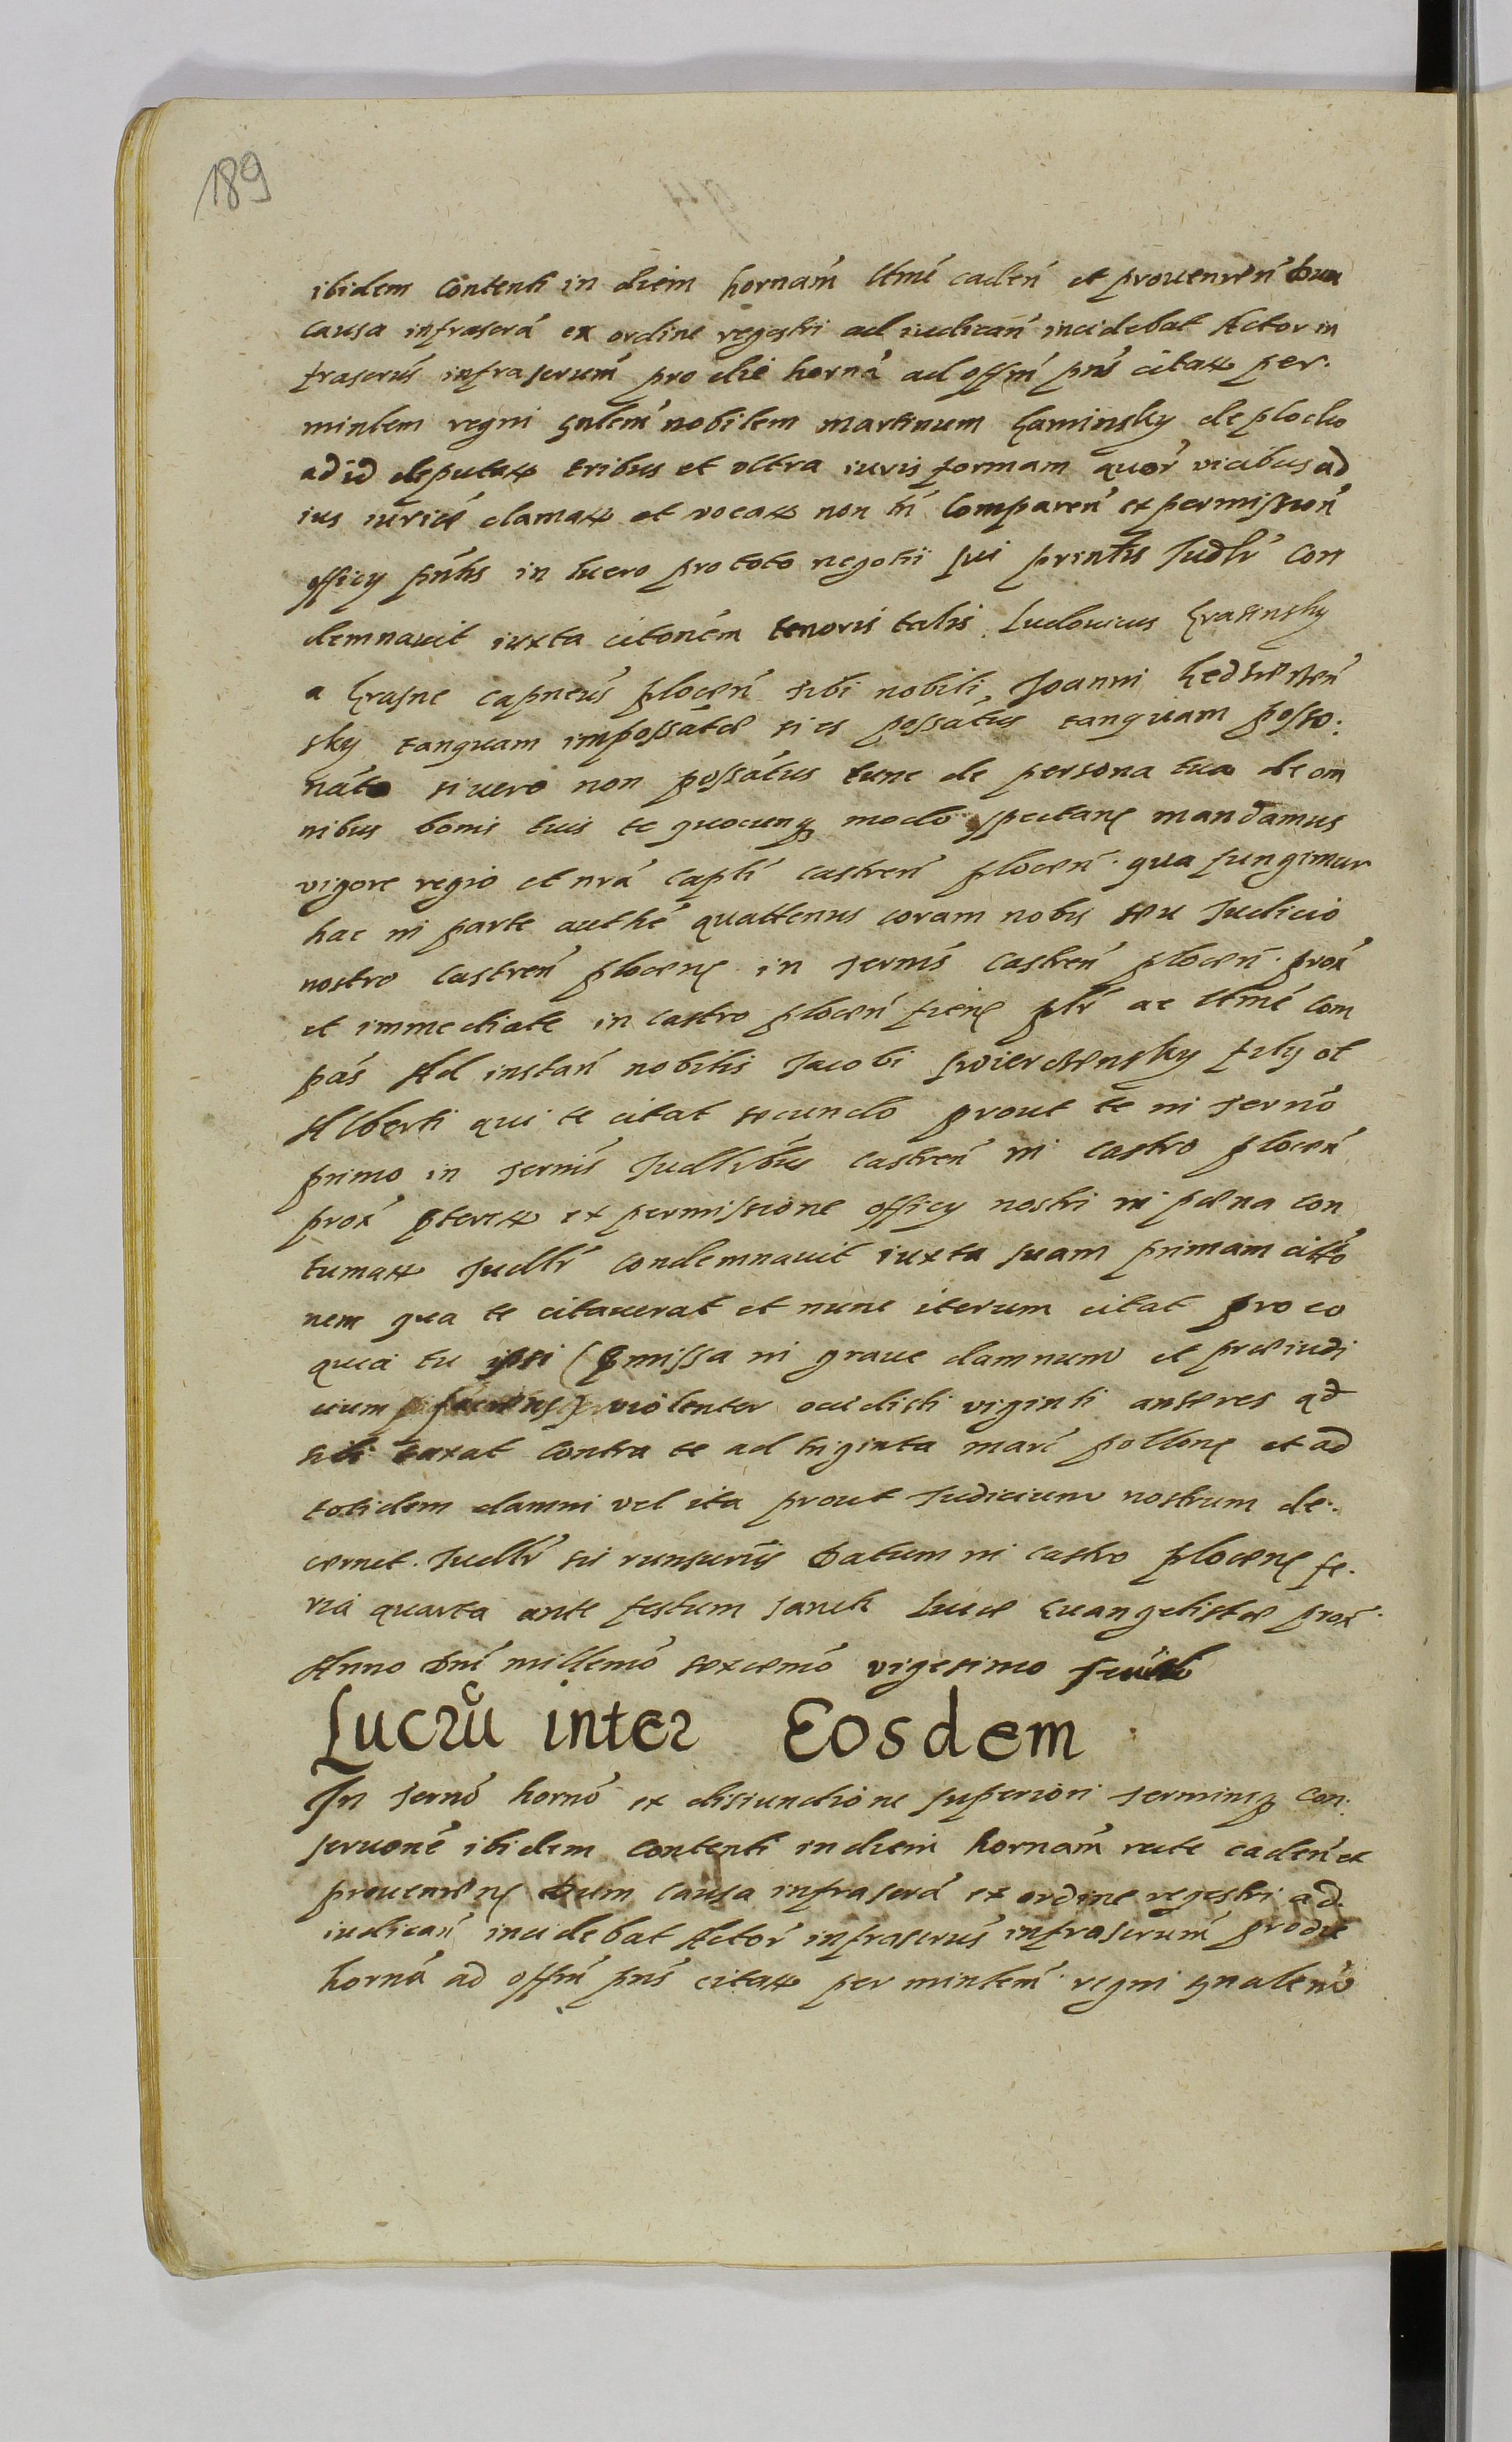 189
ibidem Contenti in diem hornam̃ ltmé caden̄ et prouenien̄ Dum
causa infrascrá ex ordine regestri ad iudican̄ incidebat Actor in
frascrús infrascrum̃ pro die horná ad offm̃ pns̃ citatt per
minlem regni gnlem̃ nobilem Martinum Kaminsky de plocko
ad id deputatt tribus et vltra iuris formam quor̃ vicibus ad
ius iurice clamatt et vocatt non tn̄ Comparen̄ ex permission̄
officy pn̄tis in lucro pro toto negotii sui prin̄tis Judlr̃ con
demnauit iuxta citonem̃ tenoris talis Ludouicus Krasinsky
a Krasne capneus̃ plocen̄ tibi nobili Joanni
sky tanquam impossáto si es possátus tanquam posso.
náto si vero non possátus tunc de persona tua de om
nibus bonis tuis te quocunq modo spectanẽ mandamus
vigore regio et nrá caplí castren̄ plocen̄ qua fungimur
hac in parte authé quattenus coram nobis seu Judicio
nostro Castren̄ plocenẽ in termís Castren̄ plocen̄ prox̃
et immediate in castro plocen̄ fienẽ plr̃ ac ltmé com
pás Ad instan̄ nobilis Jacobi Swierczensky fily ol
Alberti qui te citat secundo prout te in termó
primo in termís Judlribus̃ castren̄ in castro plocen̄
prox̃ pteritt ex permissione officy nostri in pæna con
tumatt Judlr̃ condemnauit iuxta suam primam citto
nem qua te citauerat et nunc iterum citat pro eo
quia tu ipsi (pmissa in graue damnum et præiudi
cium faciens) violenter occidisti viginti anseres qd
sibi taxat contra te ad triginta marć pollonẽ et ad
totidem damni vel ita prout Judicium nostrum de.
cernet Judlr̃ sis Datum in castro plocenẽ fe.
ria quarta ante festum sancti Lucæ Euangelistæ prox̃
Anno Dni millemó sexcemó vigesimo
Lucrũ inter Eosdem
In termó hornó ex disiunctione superiori terminiq con.
seruoné ibidem contenti in diem hornam̃ recte caden̄ et
prouenienẽ Dum causa infrascrá ex ordine regestri ad
iudican̄ incidebat Actor̃ infrascrús infrascrum̃ pro die
horná ad offm̃ pns̃ citatt per minlem̃ regni gnalem̃